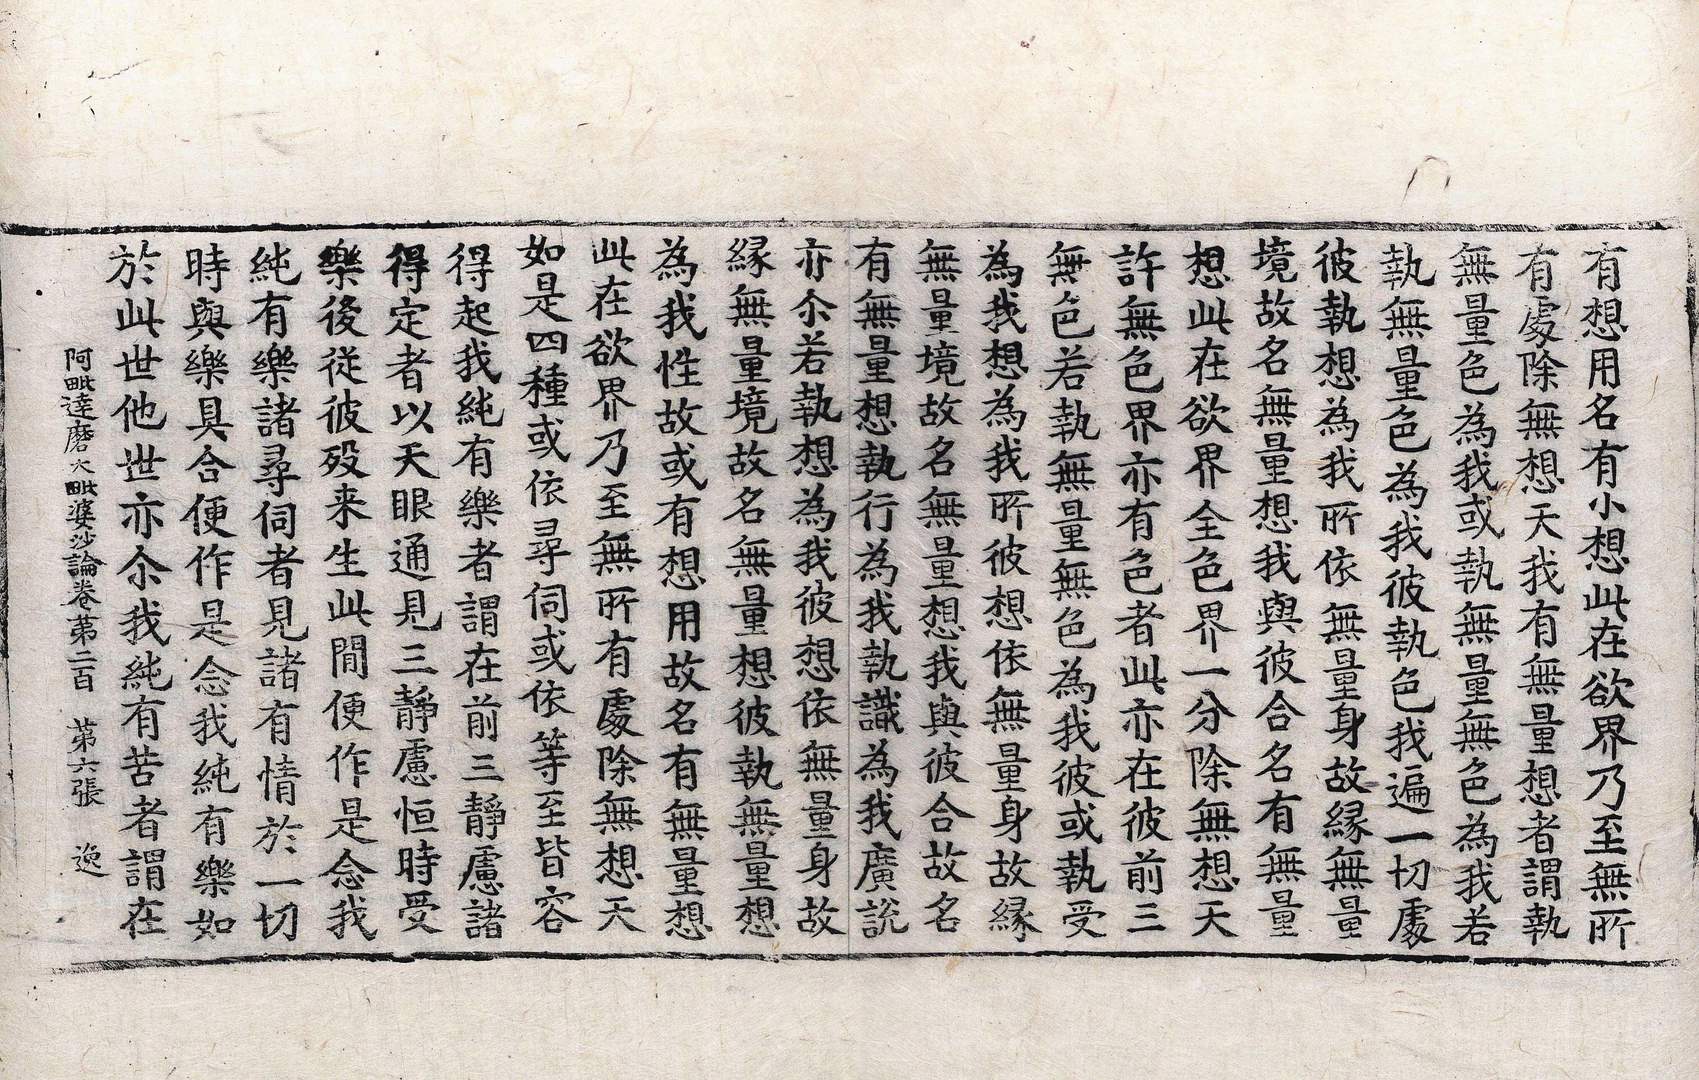 有想用名有小想此在欲界乃至無所
有處除無想天我有無量想者謂執
無量色為我或執無量無色為我若
執無量色為我彼執色我遍一切處
彼執想為我所依無量身故緣無量
境故名無量想我與彼合名有無量
想此在欲界全色界一分除無想天
許無色界亦有色者此亦在彼前三
無色若執無量無色為我彼或執受
為我想為我所彼想依無量身故緣
無量境故名無量想我與彼合故名
有無量想執行為我執識為我廣說
亦尒若執想為我彼想依無量身故
緣無量境故名無量想彼執無量想
為我性故或有想用故名有無量想
此在欲界乃至無所有處除無想天
如是四種或依尋伺或依等至皆容
得起我純有樂者謂在前三靜慮諸
得定者以天眼通見三靜慮恒時受
樂後從彼歿来生此間便作是念我
純有樂諸尋伺者見諸有情於一切
時與樂具合便作是念我純有樂如
於此世他世亦尒我純有苦者謂在
阿毗達磨大毗婆沙論卷第二百 第六張 逸